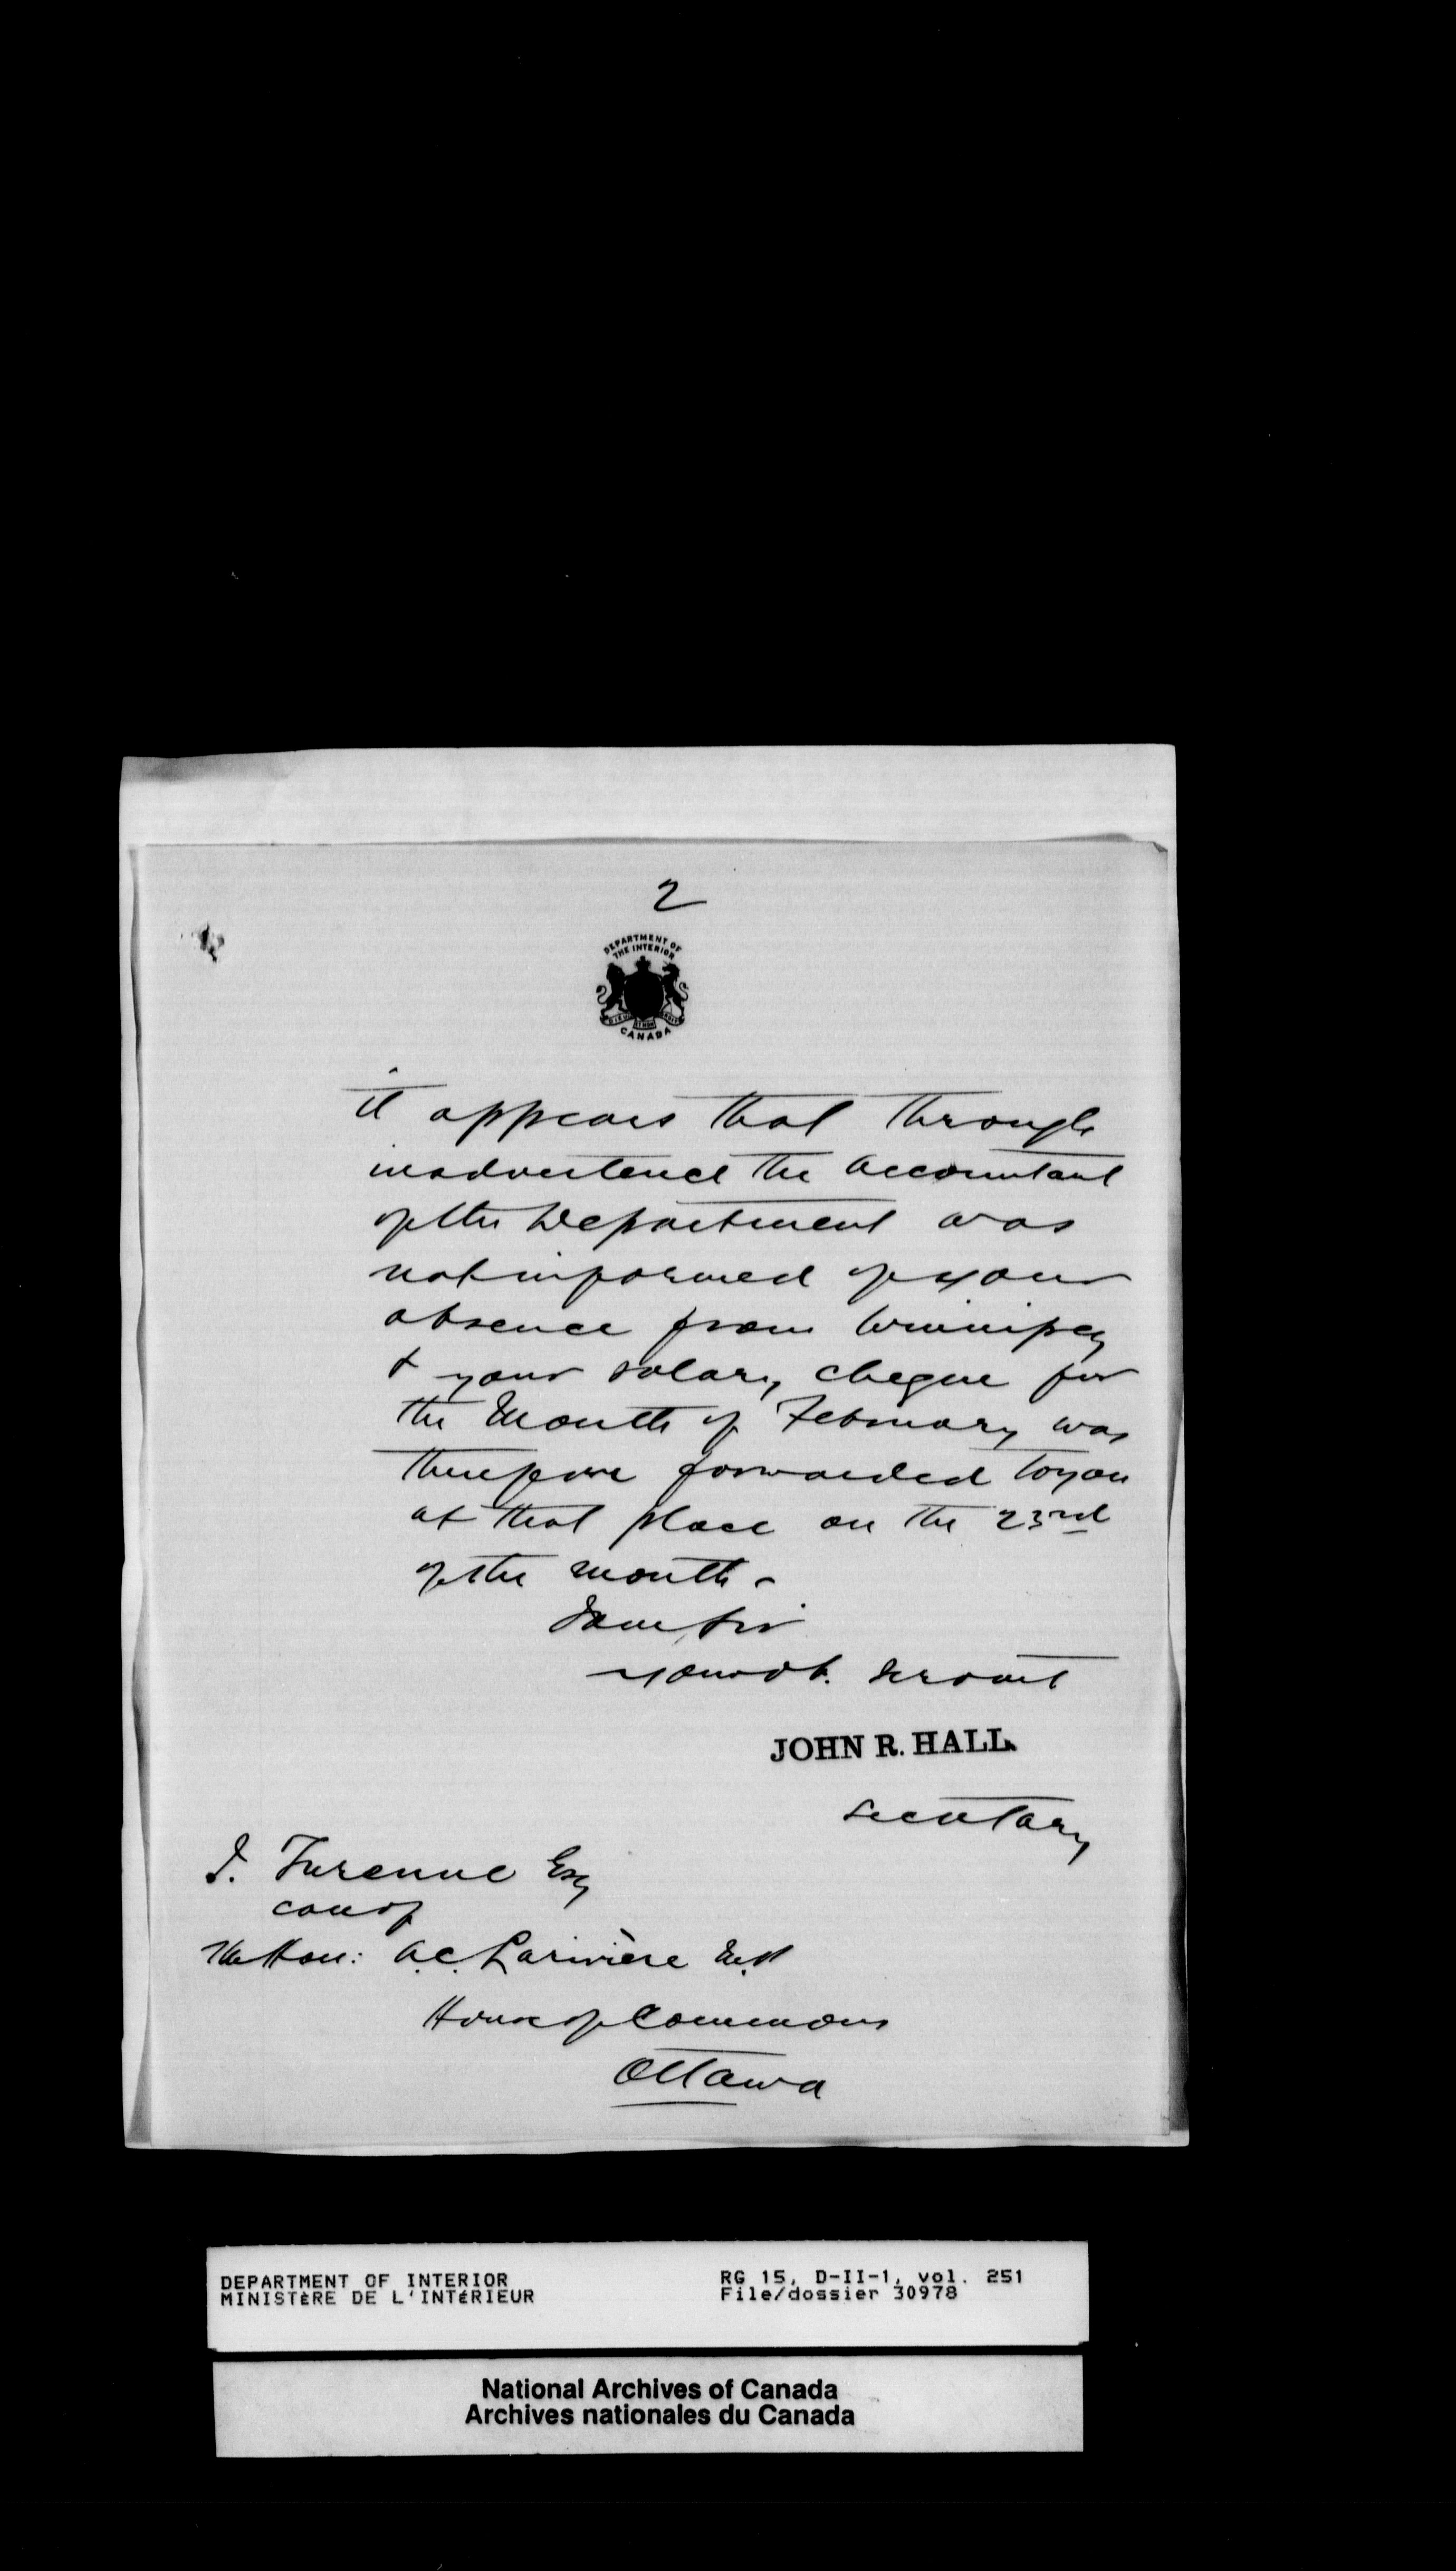 2
DEPARTMENT OF
THE INTERIOR
CANADA
it appears that through
inadvertence the accountant
of the Department was
not informed of your
absence from Winnipeg
& your salary cheque for
the Month of February was
therefore forwarded to you
at that place on the 23rd
of the month.
I am, Sir
Your ob. Servant
JOHN R. HALL
Secretary
J. Turenne Esq
care of
The Hon: A.C. Larivière M.P
House of Commons
Ottawa
DEPARTMENT OF INTERIOR
MINISTÈRE DE L'INTÉRIEUR
RG 15, D-II-1, vol. 251
File/dossier 30978
National Archives of Canada
Archives nationales du Canada